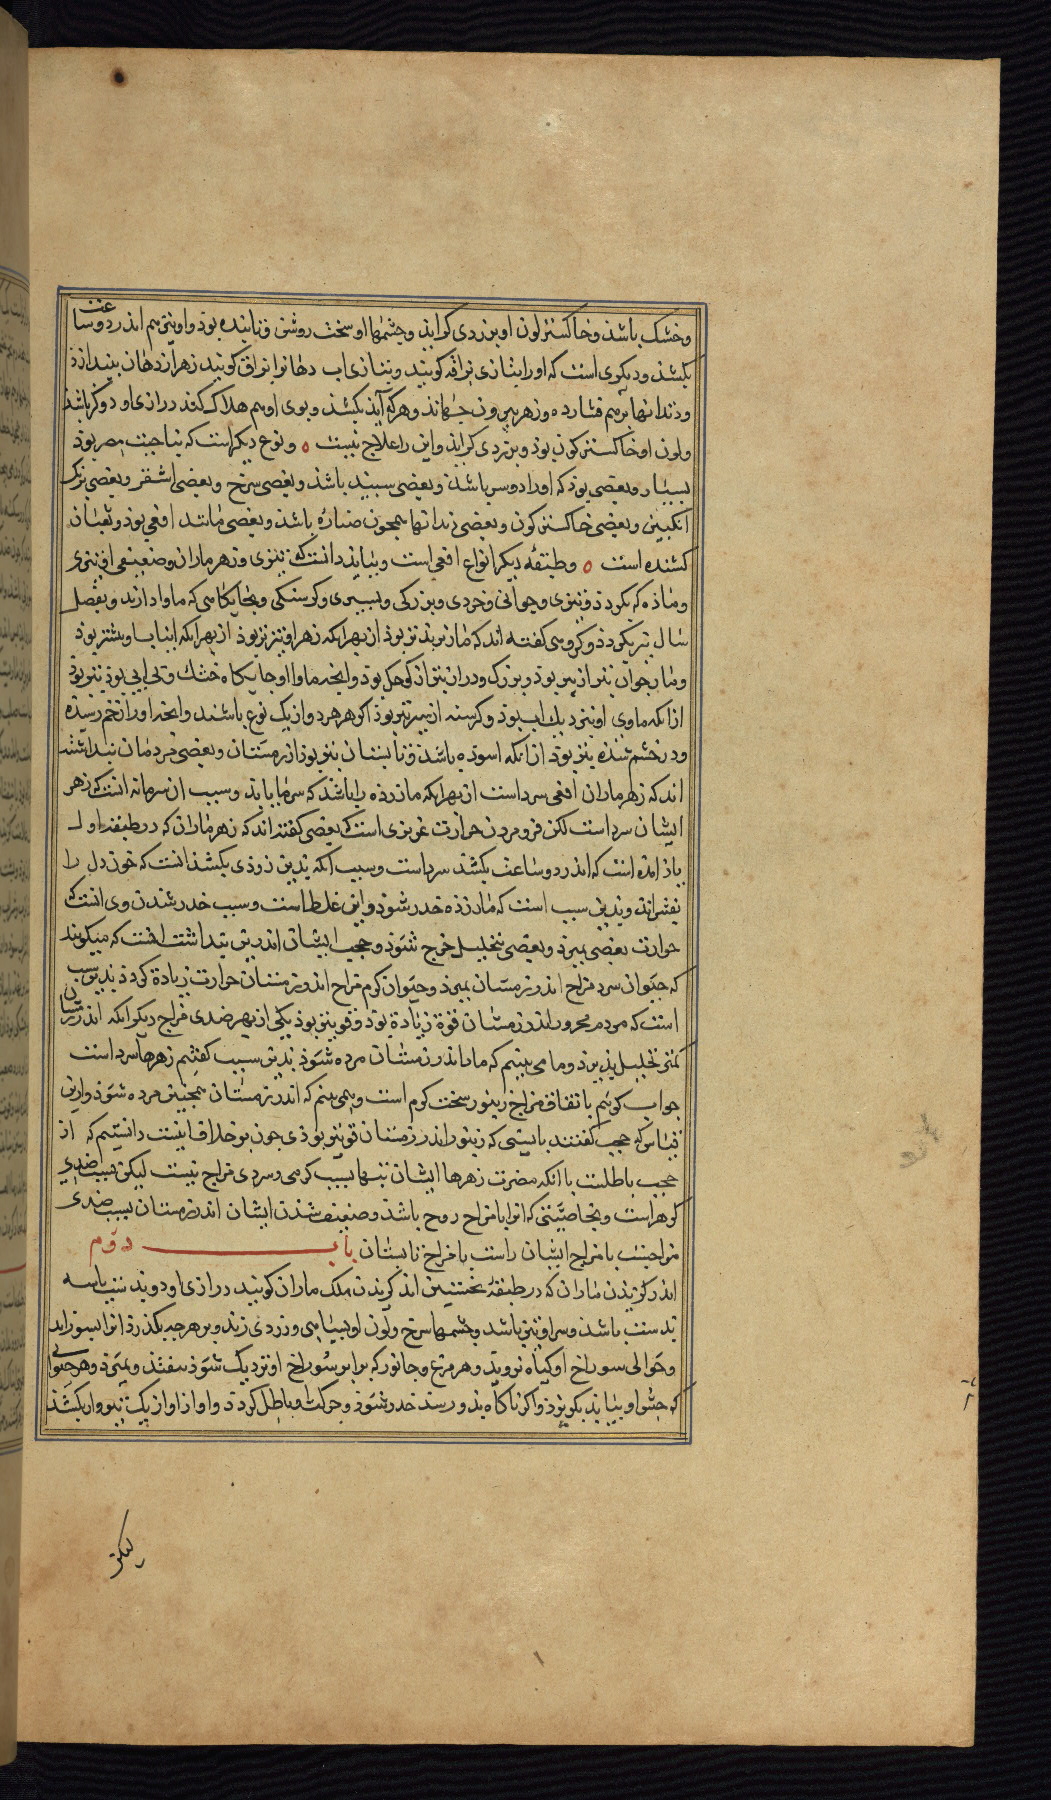 وخشک باشذ وخاکستر لون او بزردی کرایذ وچشمها او سخت روشن وتابنده بوذ واو نیز هم اندر دو ساعت
بکشذ ودیکری است که اورا بتازی بزاقه کویند وبتازی اب دهانرا بزاق کویند زهر از دهان بیندازذ
ودندانها برهم فشارده وزهر بیرون جهاند وهرکه آیذ بکشذ وبوی او هم هلاک کند درازی او دو کز باشذ
ولون او خاکستر کون بوذ وبزردی کرایذ واین را علاج نیست ه ونوع دیکر است که بناحیت مصر بوذ
بسیار وبعضی بوذ که اورا دو سر باشذ وبعضی سبید باشذ وبعضی سرخ وبعضی اشقر وبعضی برنک
انکبین وبعضی خاکستر کون وبعضی دندانها همجون صناره باشذ وبعضی مانند افعی بوذ وثعبان
کشنده است ه وطبقه دیکر انواع افعی است وبباید دانست که تیزی وزهر ماران وضعیفی از نری
وماذه که کردذ وتیزی وجوانی وخردی وبزرکی وسیری وکرسنکی وبجایکاهی که ماوا دارند وبفصل
سال نیز بکردذ وکروهی کفته اند که ماذه بذتر بوذ از بهر انکه زهر او تیزتر بوذ از بهر انکه انیاب او بیشتر بوذ
ومار جوان بتر از پیر بوذ وبزرک ودراز بتر از کوجک بوذ وانچه ماوا او جایکاه خشک وبی ابی بوذ بتر بوذ
ازانکه ماوی او نزدیک اب بوذ وکرسنه از سیر بتر بوذ اکر هر دو از یک نوع باشند وانچه اورا زخم رسیذه
ودر خشم شذه بتر بوذ ازانکه اسوذه باشذ وتابستان بتر بوذ از زمستان وبعضی مردمان پنداشته
اند که زهر ماران افعی سرد است از بهر انکه مار زذه را باشذ که سرما یابد وسبب ان سرما نه انست که زهر
ایشان سرد است لکن فرو مردن حرارت غریزی است که بعضی کفتند اند که زهر ماران که در طبقه اول
یاذ امده است که اندر دو ساعت بکشد سرد است وسبب انکه بدین زوذی بکشذ انست که خون دل را
بفشراند وبدین سبب است که مار زذه خدر شوذ واین غلط است وسبب خدر شدن وی انست که
حرارت بعضی بمیرد وبعضی بتحلیل خرج شوذ وحجت ایشان اندرین پنداشت انست که میکویند
که حیوان سرد مزاج اندر زمستان بمیرذ وحیوان کرم مزاج اندر زمستان حرارت زیادة کردذ بدین سبب
است که مردم محرور اندر زمستان قوة زیادة بوذ وقوی‌تر بوذ یکی از بهر ضدی مزاج دیکر انکه اندر زمستان
کمتر تحلیل پذیرذ وما می بینیم که مار اندر زمستان مرده شوذ بدین سبب کفتیم زهرها سرد است
جواب کوئیم باتفاق مزاج زنبور سخت کرم است وهمی بینم که اندر زمستان همجنین مرده شوذ وازین
قیاس که حجت کفتند بایستی که زنبور اندر زمستان قوی‌تر بوذی جون بر خلاف اینست دانستیم که از
حجت باطلست با انکه مضرت زهرها ایشان تنها بسبب کرمی وسردی مزاج نیست لیکن بسبب ضدی
کوهر است وبخاصیتی که انرا با مزاج روح باشذ وضعیف شذن ایشان اندر زمستان بسبب ضدی
مزاجیست با مزاج ایشان راست با مزاج تابستان باب دوم
اندر کزیذن ماران که در طبقه نخستین اند کزیذن ملک ماران کویند درازی او دو بدست یا سه
بدست باشذ وسر او تیز باشد وجشمها سرخ ولون او بسیاهی وزردی زند وبر هرجه بکذرذ انرا بسوزاند
وحوالی سوراخ او کیاه نروید وهر مرغ وجانور که برابر سوراخ او نزدیک شوذ بیفتذ وبمیرذ وهر حیوانی
که حس او بیابذ بکریزذ واکر ناکاه بذو رسذ خدر شوذ وحرکت او باطل کردذ واواز او از یک تیروار بکشذ
لیکن